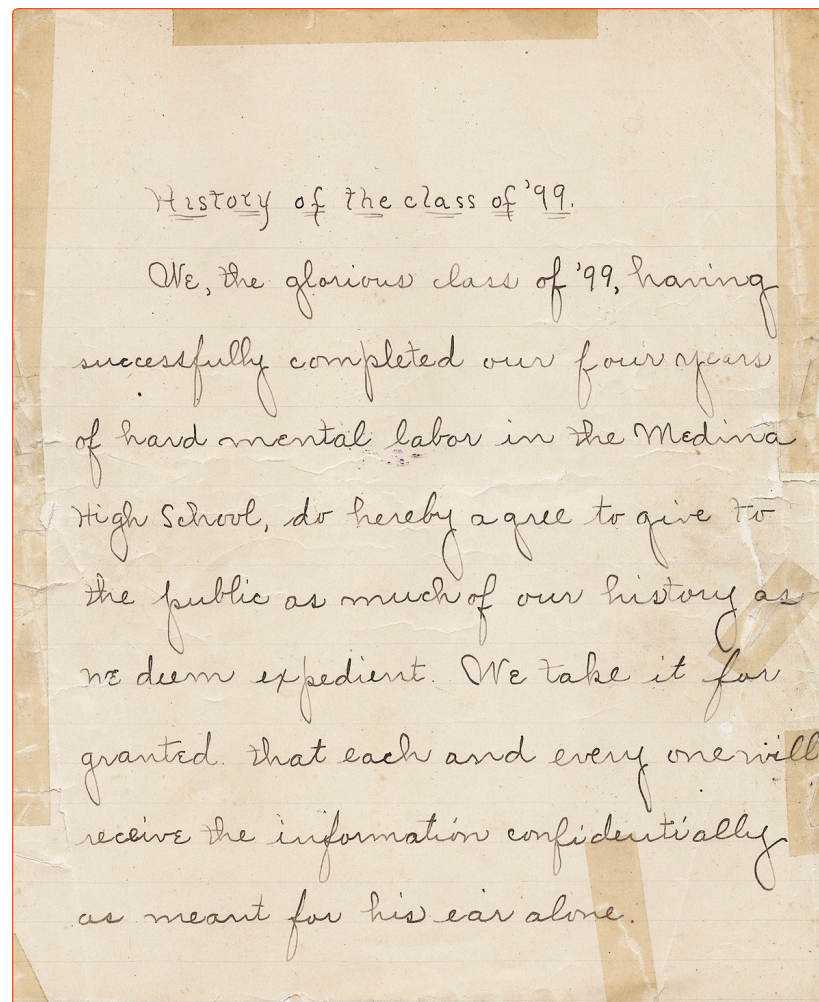 History of the class of '99.
We, the glorious class of '99, having
successfully completed our four years
of hard mental labor in the Medina
High School, do hereby agree to give to
the public as much of our history as
we deem expedient. We take it for
granted that each and every one will
receive the information confidentially
as meant for his ear alone.